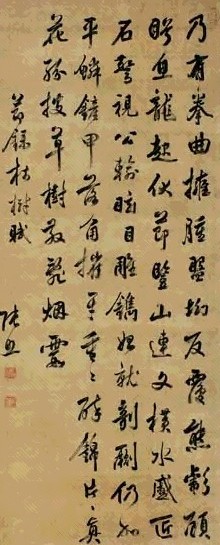 乃有拳曲擁腫盤坳反覆熊彪顧
盼魚龍起伏節豎山連文橫水蹙匠
石驚視公輸眩目雕鐫始就剞劂仍加
平鱗鏟甲落角摧牙重重碎錦片片真
花紛披草樹散亂烟霞
節錄枯樹賦
張照